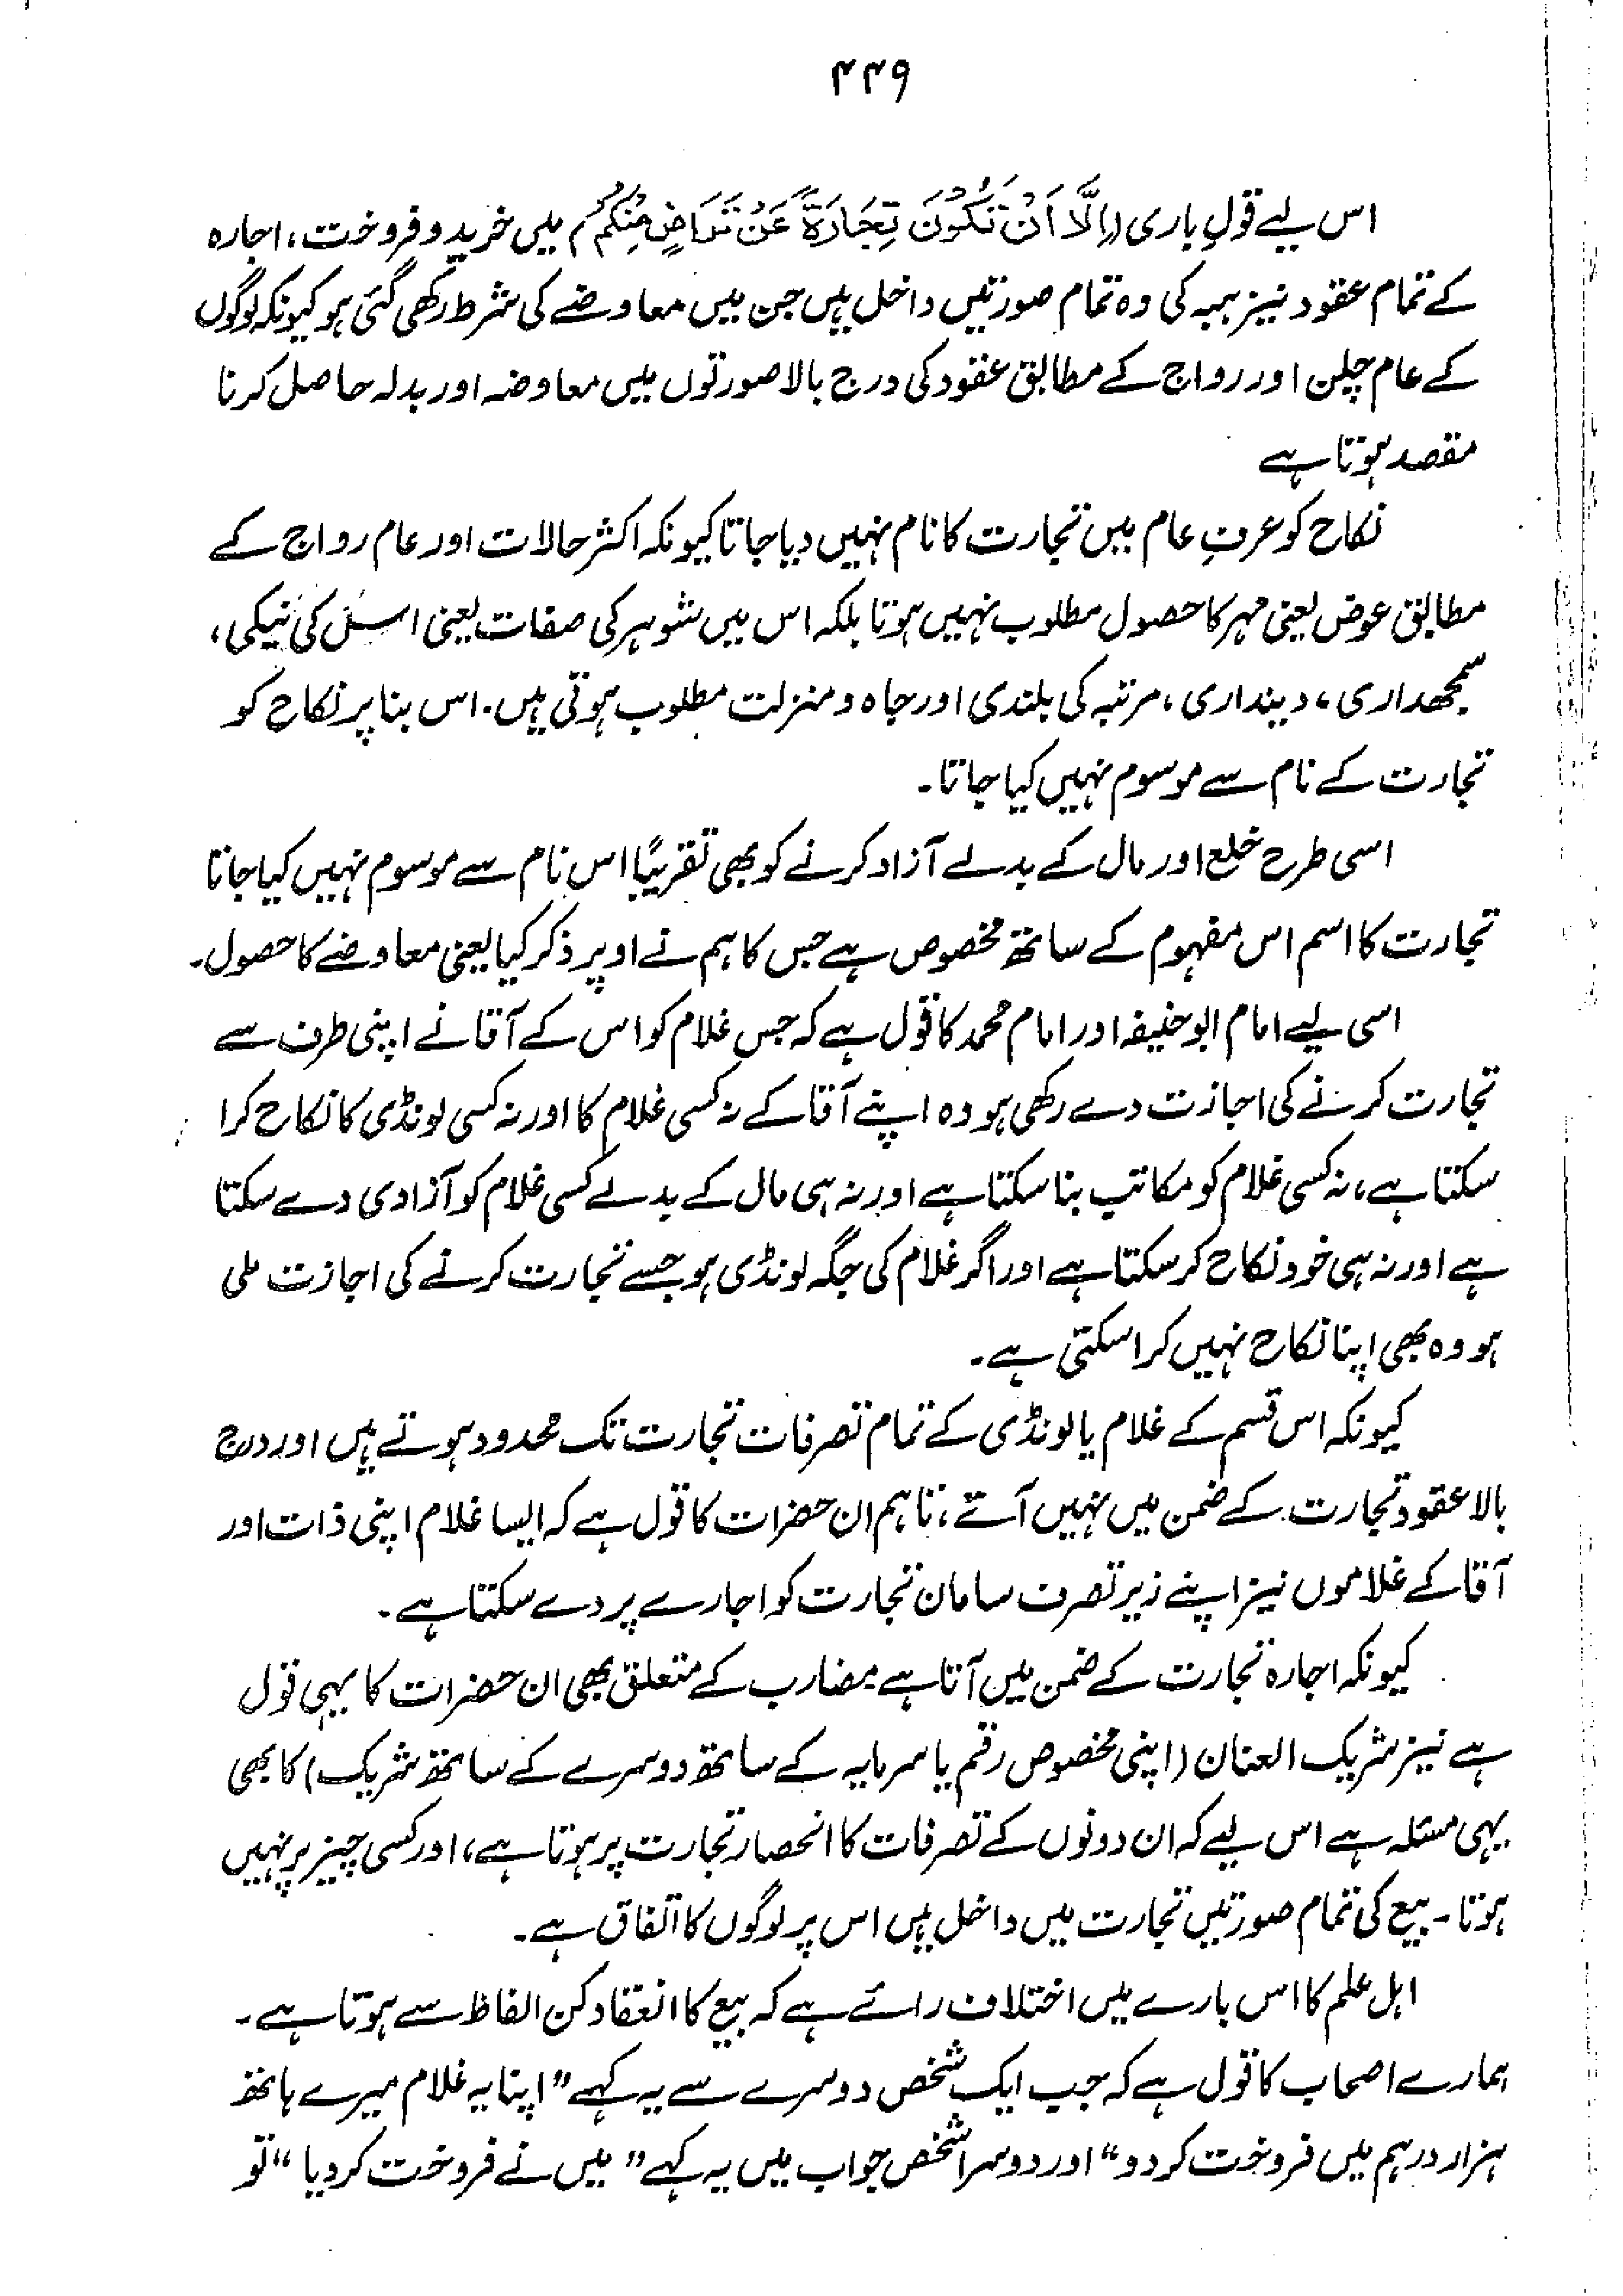 ۴۴۹
اس لیے قولِ باری (اِلَّا اَنْ تَكُوْنَ تِجَارَةً عَنْ تَرَاضٍ مِّنْكُمْ) میں خرید و فروخت، اجارہ
کے تمام عقود نیز ہبہ کی وہ تمام صورتیں داخل ہیں جن میں معاوضے کی شرط رکھی گئی ہو کیونکہ لوگوں
کے عام چلن اور رواج کے مطابق عقود کی درج بالا صورتوں میں معاوضہ اور بدلہ حاصل کرنا
مقصد ہوتا ہے
نکاح کو عرفِ عام میں تجارت کا نام نہیں دیا جاتا کیونکہ اکثر حالات اور عام رواج کے
مطابق عوض یعنی مہر کا حصول مطلوب نہیں ہوتا بلکہ اس میں شوہر کی صفات یعنی اس کی نیکی،
سمجھداری، دینداری، مرتبہ کی بلندی اور جاہ و منزلت مطلوب ہوتی ہیں۔ اس بنا پر نکاح کو
تجارت کے نام سے موسوم نہیں کیا جاتا۔
اسی طرح خلع اور مال کے بدلے آزاد کرنے کو بھی تقریباً اس نام سے موسوم نہیں کیا جاتا
تجارت کا اسم اس مفہوم کے ساتھ مخصوص ہے جس کا ہم نے اوپر ذکر کیا یعنی معاوضے کا حصول۔
اسی لیے امام ابوحنیفہ اور امام محمد کا قول ہے کہ جس غلام کو اس کے آقا نے اپنی طرف سے
تجارت کرنے کی اجازت دے رکھی ہو وہ اپنے آقا کے نہ کسی غلام کا اور نہ کسی لونڈی کا نکاح کرا
سکتا ہے، نہ کسی غلام کو مکاتب بنا سکتا ہے اور نہ ہی مال کے بدلے کسی غلام کو آزادی دے سکتا
ہے اور نہ ہی خود نکاح کر سکتا ہے اور اگر غلام کی جگہ لونڈی ہو جسے تجارت کرنے کی اجازت ملی
ہو وہ بھی اپنا نکاح نہیں کرا سکتی ہے۔
کیونکہ اس قسم کے غلام یا لونڈی کے تمام تصرفات تجارت تک محدود ہوتے ہیں اور درج
بالا عقود تجارت کے ضمن میں نہیں آتے، تاہم ان حضرات کا قول ہے کہ ایسا غلام اپنی ذات اور
آقا کے غلاموں نیز اپنے زیر تصرف سامان تجارت کو اجارے پر دے سکتا ہے۔
کیونکہ اجارہ تجارت کے ضمن میں آتا ہے مضارب کے متعلق بھی ان حضرات کا یہی قول
ہے نیز شریک العنان (اپنی مخصوص رقم یا سرمایہ کے ساتھ دوسرے کے ساتھ شریک) کا بھی
یہی مسئلہ ہے اس لیے کہ ان دونوں کے تصرفات کا انحصار تجارت پر ہوتا ہے، اور کسی چیز پر نہیں
ہوتا۔ بیع کی تمام صورتیں تجارت میں داخل ہیں اس پر لوگوں کا اتفاق ہے۔
اہل علم کا اس بارے میں اختلاف رائے ہے کہ بیع کا انعقاد کن الفاظ سے ہوتا ہے۔
ہمارے اصحاب کا قول ہے کہ جب ایک شخص دوسرے سے یہ کہے ”اپنا یہ غلام میرے ہاتھ
ہزار درہم میں فروخت کر دو“ اور دوسرا شخص جواب میں یہ کہے ”میں نے فروخت کر دیا“ تو